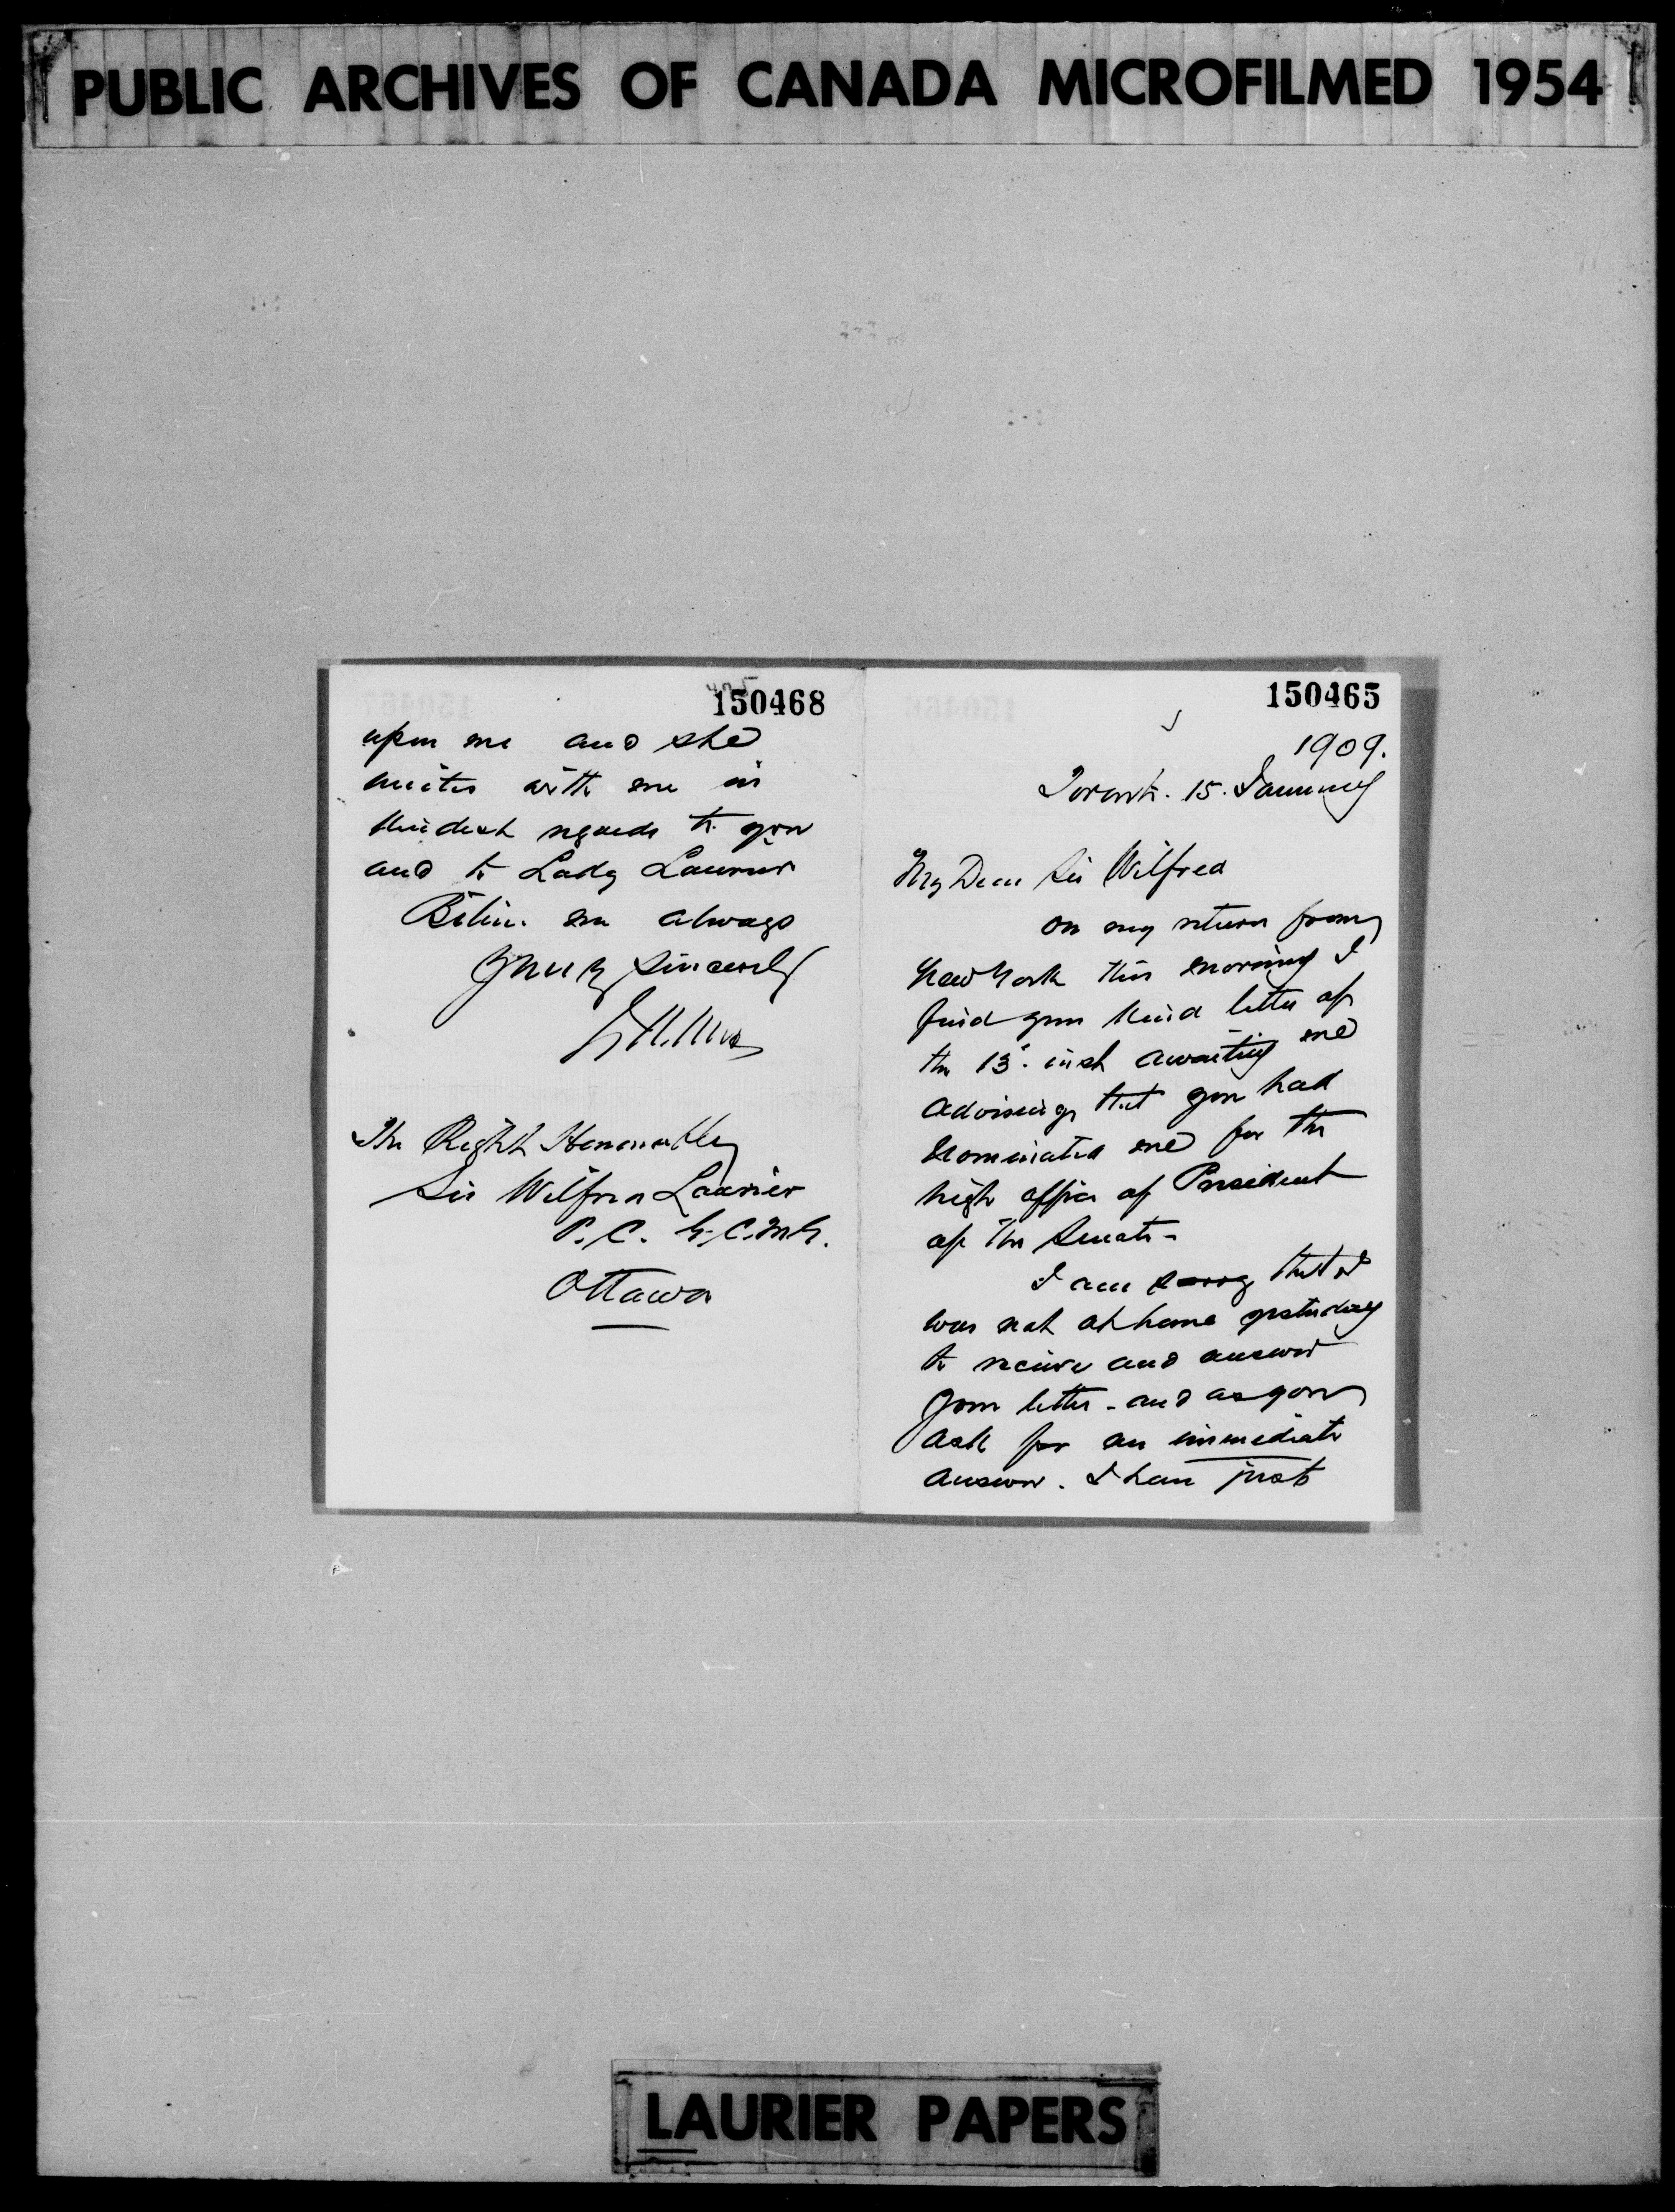 PUBLIC ARCHIVES OF CANADA MICROFILMED 1954
150468
upon me and she
unites with me in
kindest regards to you
and to Lady Laurier
Believe me always
Yours Sincerely
The Right Honourable
Sir Wilfrid Laurier
P.C. G.C.M.G.
Ottawa
150465
1909.
Toronto. 15. January
My Dear Sir Wilfred
on my return from
New York this morning I
find your kind letter of
the 13. inst awaiting me
advising that you had
nominated me for the
high office of President
of The Senate-
I am sorry that I
was not at home yesterday
to receive and answer
your letter - and as you
ask for an immediate
answer. I have just
LAURIER PAPERS